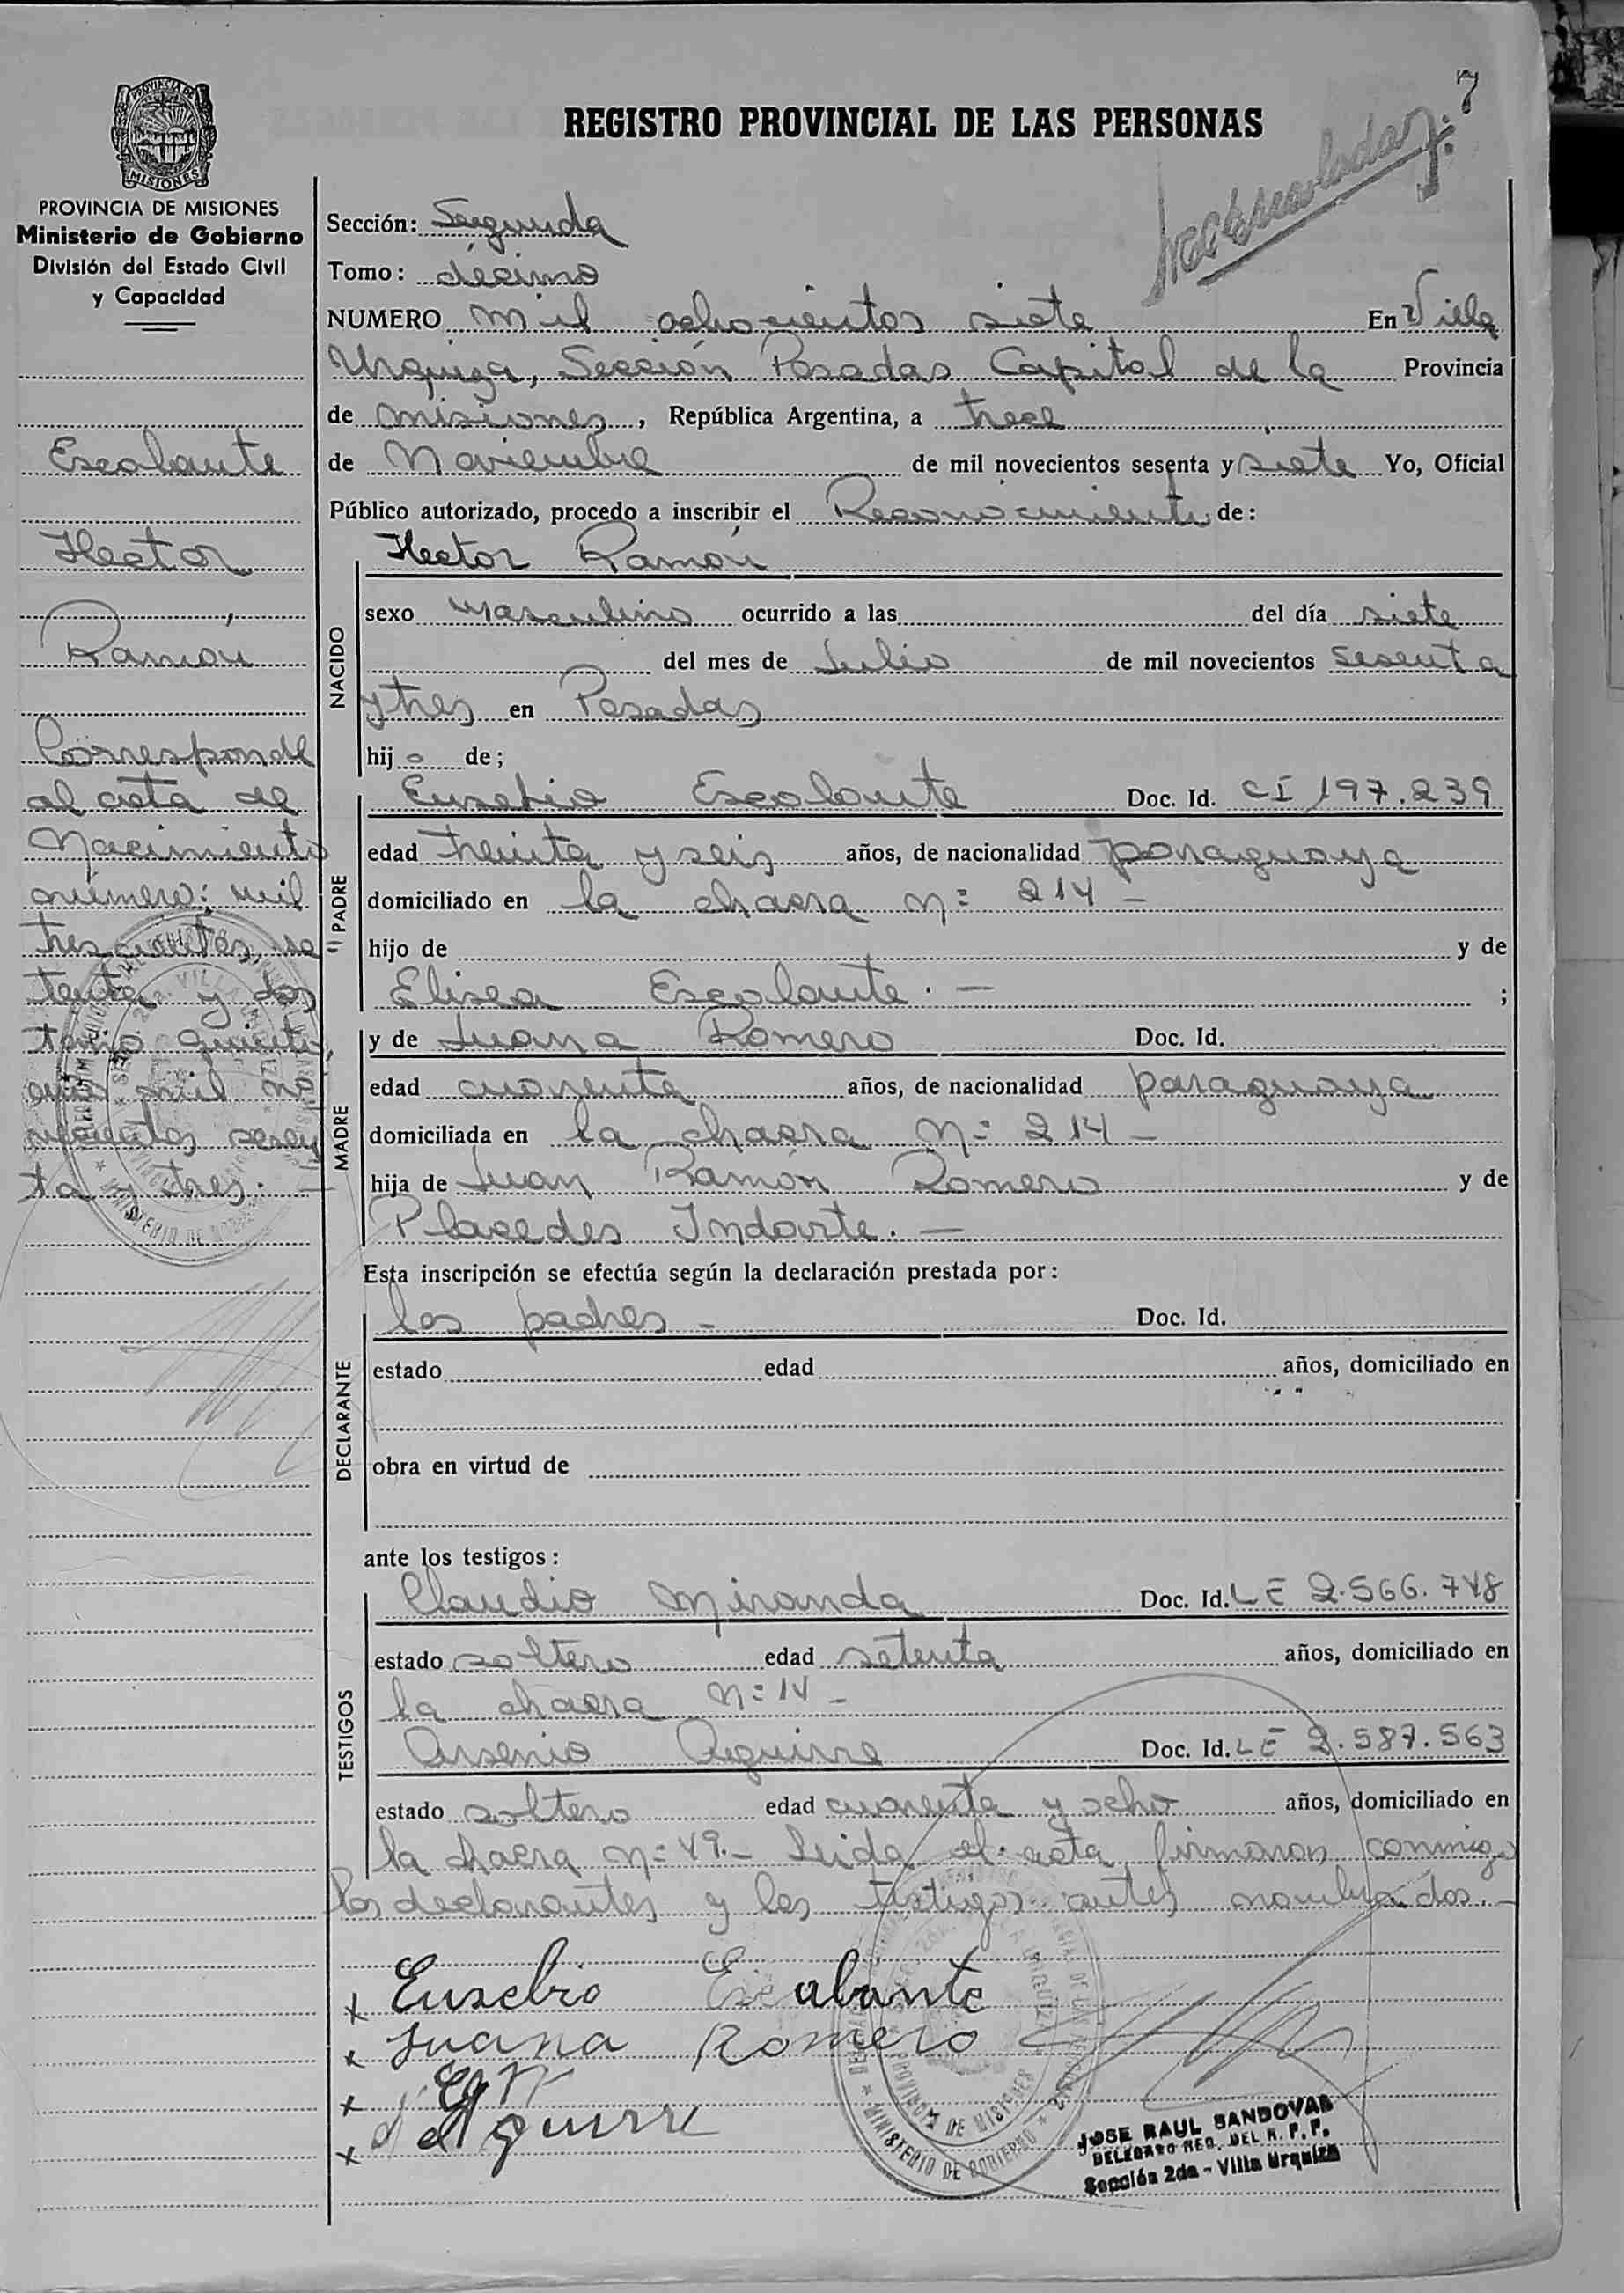 7
REGISTRO PROVINCIAL DE LAS PERSONAS
PROVINCIA DE
MISIONES
PROVINCIA DE MISIONES
Ministerio de Gobierno
División del Estado Civil
y Capacidad
Escalante
Hector
Ramón
Corresponde
al acta de
Nacimiento
número: mil
trescientos, se
tenta y dos
tomo quinto,
año mil no
vecientos sesen
ta y tres. —
Sección: Segunda
Tomo: décimo
NUMERO mil ochocientos siete En Villa
Urquiza, Sección Posadas Capital de la Provincia
de misiones, República Argentina, a trece
de Noviembre de mil novecientos sesenta y siete Yo, Oficial
Público autorizado, procedo a inscribir el Reconocimiento de:
Hector Ramón
NACIDO
sexo Masculino ocurrido a las del día siete
del mes de Julio de mil novecientos sesenta
y tres en Posadas
hijo de;
PADRE
Eusebio Escalante Doc. Id. CI 197.239
edad treinta y seis años, de nacionalidad paraguaya
domiciliado en la chacra n: 214 -
hijo de y de
Elisea Escalante. — ;
MADRE
y de Juana Romero Doc. Id.
edad cuarenta años, de nacionalidad paraguaya
domiciliada en la chacra N: 214 -
hija de Juan Ramón Romero y de
Placedes Indarte. —
Esta inscripción se efectúa según la declaración prestada por:
DECLARANTE
los padres - Doc. Id.
estado edad años, domiciliado en
obra en virtud de
ante los testigos:
TESTIGOS
Claudio Miranda Doc. Id. LE 2.566.748
estado soltero edad setenta años, domiciliado en
la chacra N: 14 -
Arsenio Aguirre Doc. Id. LE 2.587.563
estado soltero edad cuarenta y ocho años, domiciliado en
la chacra N: 49.- Leida el acta, firmaron conmigo
los declarantes y los testigos antes nombrados. -
x Eusebio Escalante
x Juana Romero
x
x Aguirre
PROVINCIA DE MISIONES
MINISTERIO DE GOBIERNO
JOSE RAUL SANDOVAL
DELEGADO REG. DEL R. P. P.
Sección 2da - Villa Urquiza